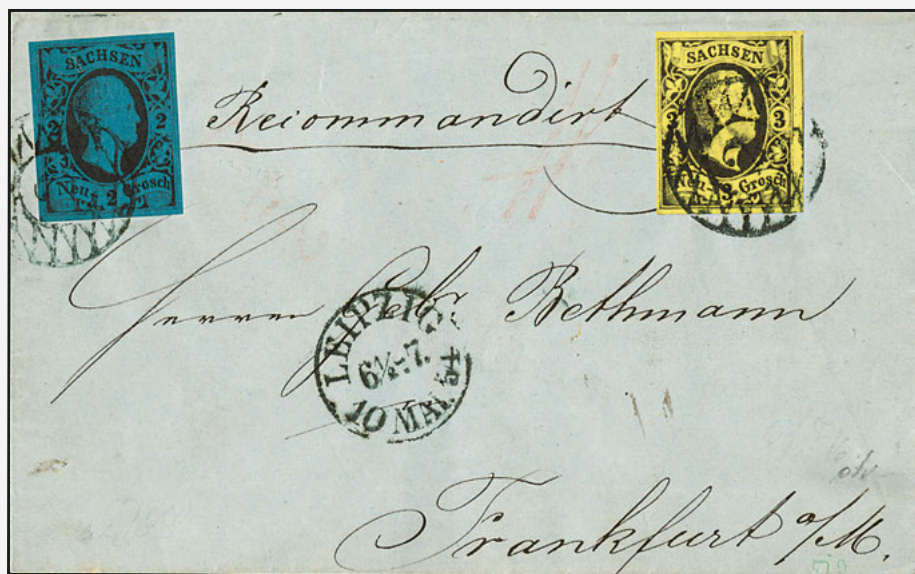 SACHSEN
2 2
Neu- 2 Grosch
Recommandirt
SACHSEN
3 3
Neu- 3 Grosch
Herren Gebr. Bethmann
LEIPZIG
6½-7.
10 MAI
Frankfurt a/M.